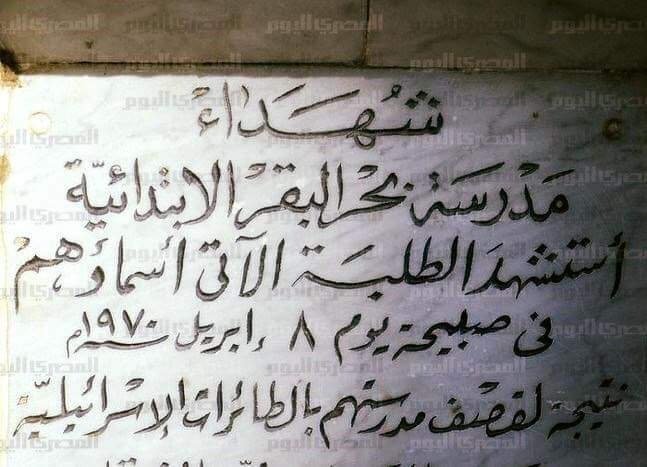 شُهَدَاءُ
مَدْرَسَة بَحْر البَقَرْ الابتدائيّة
أستشهدَ الطلبَة الآتى أسماؤهمْ
فى صبيحة يوم ٨ ابريل سنة ١٩٧٠م
نتيجة لقصْف مدرستهم بالطائرات الإسْرائيليّة
المصري اليوم